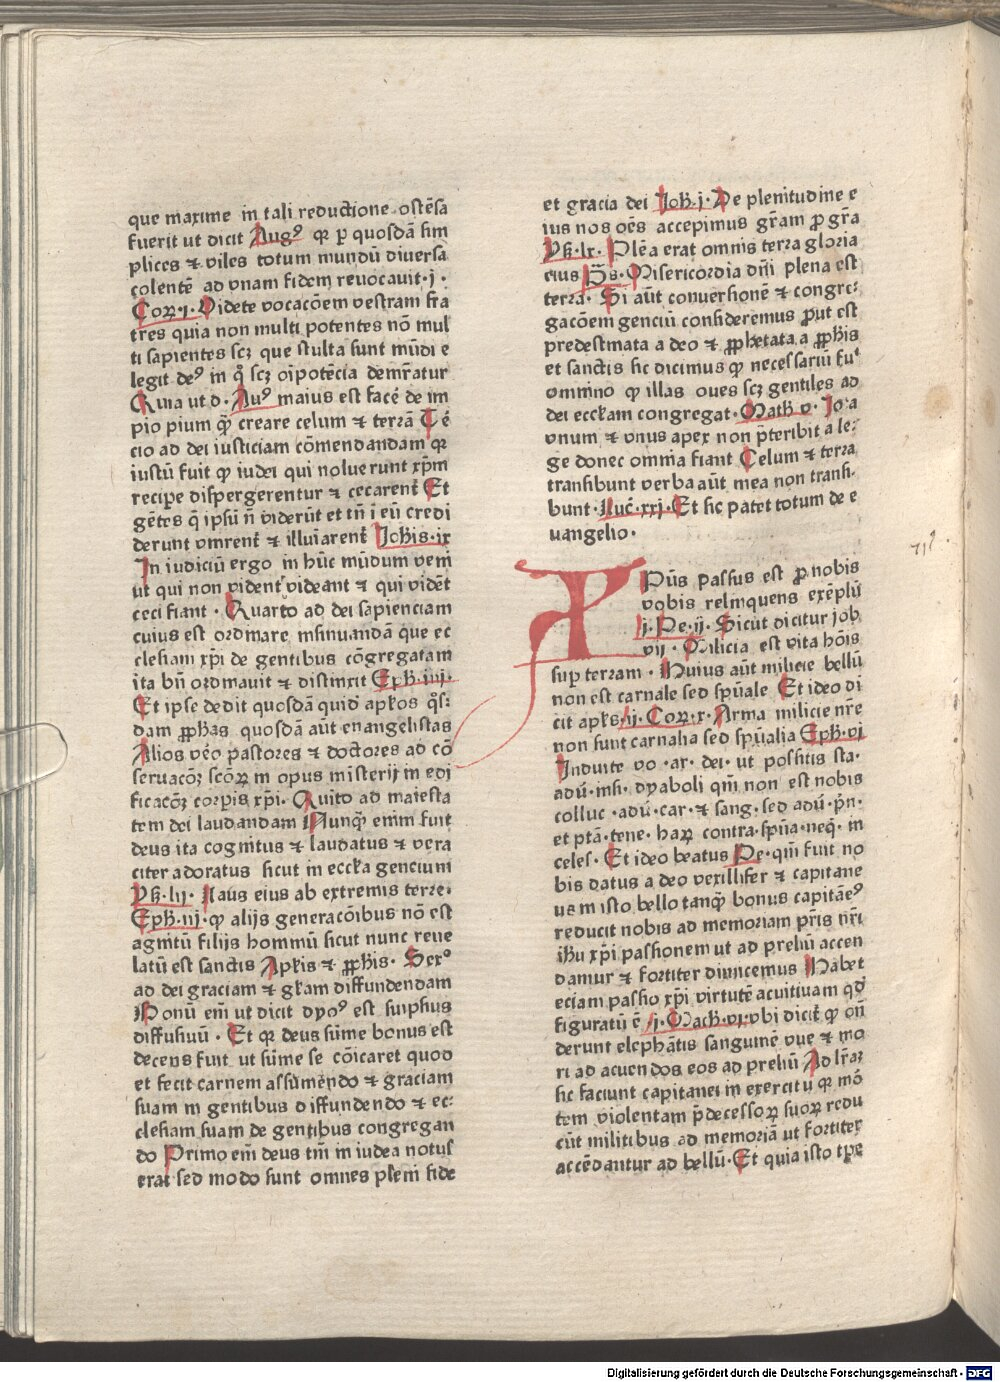 que maxime in tali reductione ostēsa
fuerit ut dicit Augꝰ qꝛ p quosdā sim
plices ⁊ viles totum mundū diuersa
colentē ad vnam fidem reuocauit · j ·
Coꝝ · j · Videte vocacōem vestram fra
tres quia non multi potentes nō mul
ti sapientes scꝫ que stulta sunt mūdi e
legit deꝰ in q̊ scꝫ oīpotēcia demr̄atur
Quia ut d · Auꝰ maius est facē de im
pio pium q̄ꝫ creare celum ⁊ terrā Té
cio ad dei iusticiam cōmendandam qꝛ
iustū fuit ꝙ iudei qui noluerunt xp̄m
recipe dispergerentur ⁊ cecarent̄ Et
gētes q̄ ipsū n̄ viderūt et tn̄ ī eū credi
derunt vnirent̄ ⁊ illuīarent̄ Joh̄is · ix
In iudiciū ergo in hūc mūdum veni
ut qui non vident videant ⁊ qui vidēt
ceci fiant · Quarto ad dei sapienciam
cuius est ordinare insinuandā que ec
clesiam xp̄i de gentibus cōgregatam
ita bn̄ ordinauit ⁊ distinxit Eph̄ · iiij ·
Et ipse dedit quosdā quidē apl̄os q̊s:
dam ꝓph̄as quosdā aūt enangelistas
Alios vēo pastores ⁊ doctores ad cō
seruacōꝫ scōꝝ in opus misterij in edi
ficacōꝫ corpis xp̄i · Quīto ad maiesta
tem dei laudandam Nunq̄ꝫ enim fuit
deus ita cognitus ⁊ laudatus ⁊ vera
citer adoratus sicut in eccl̄ia gencium
Ys̄ · lij · Laus eius ab extremis terre:
Eph̄ · iij · ꝙ alijs generacōibus nō est
agnitū filijs hominū sicut nunc reue
latū est sanctis Apl̄is ⁊ ꝓph̄is · Sexᵒ
ad dei graciam ⁊ gl̄iam diffundendam
Bonū em̄ ut dicit dyoꝰ est suiip̄ius
diffusiuū · Et qꝛ deus sūme bonus est
decens fuit ut sūme se cōicaret quod
et fecit carnem assūmēndo ⁊ graciam
suam in gentibus diffundendo ⁊ ec:
clesiam suam de gentibus congregan
do Primo em̄ deus tm̄ in iudea notus
erat sed modo sunt omnes pleni fide
et gracia dei Joh̄ · j · De plenitudine e
ius nos oēs accepimus gr̄am ꝓ gr̄a
Ys̄ · lx · Plēa erat omnis terra gloria
eius Ps̄ · Misericordia dn̄i plena est
terra · Si aūt conuersionē ⁊ congre:
gacōem genciū consideremus ꝓut est
predestinata a deo ⁊ ꝓphetata a ꝓph̄is
et sanctis sic dicimus ꝙ necessariū fuᶦᵗ
omnino ꝙ illas oues scꝫ gentiles ad
dei eccl̄iam congregat · Math̄ v · Jota
vnum ⁊ vnus apex non p̄teribit a le:
ge donec omnia fiant Celum ⁊ terra
transibunt verba aūt mea non transi ·
bunt · Luc̄ · xxj · Et sic patet totum de e
uangelio ·
XPūs passus est ꝓ nobis
vobis relinquens exēplū
j · Pe · ij · Sicut dicitur job
vij · Milicia est vita hōis
sup terram · Huius aūt milicie bellū
non est carnale sed spūale Et ideo di
cit apl̄s · ij · Coꝝ · x · Arma milicie nr̄e
non sunt carnalia sed spūalia Eph̄ · vj
Induite vo · ar · dei · ut possitis sta ·
adū · insi · dyaboli qm̄ non est nobis
colluc · adū · car · ⁊ sang · sed adū · p̄n ·
et ptā · tene · haꝝ contra · spūa · neq̄ · in
celes · Et ideo beatus Pe · qm̄ fuit no
bis datus a deo vexillifer ⁊ capitane
us in isto bello tanq̄ꝫ bonus capitāeꝰ
reducit nobis ad memoriam pr̄is nr̄i
ih̄u xp̄i passionem ut ad preliū accen
damur ⁊ fortiter diuicemus Habet
eciam passio xp̄i virtutē acuitiuam qd̄
figuratū ē · j · Mach · vi · vbi dicit̄ ꝙ on̄
derunt elephātis sanguinē vue ⁊ mo
ri ad acuendos eos ad preliū Ad lr̄aꝫ
sic faciunt capitanei in exercitu qꝛ mō
tem violentam p̄decessoꝝ suoꝝ redu
cūt militibus ad memoriā ut fortiter
accēdantur ad bellū · Et quia isto tp̄e
Digitalisierung gefördert durch die Deutsche Forschungsgemeinschaft - DFG